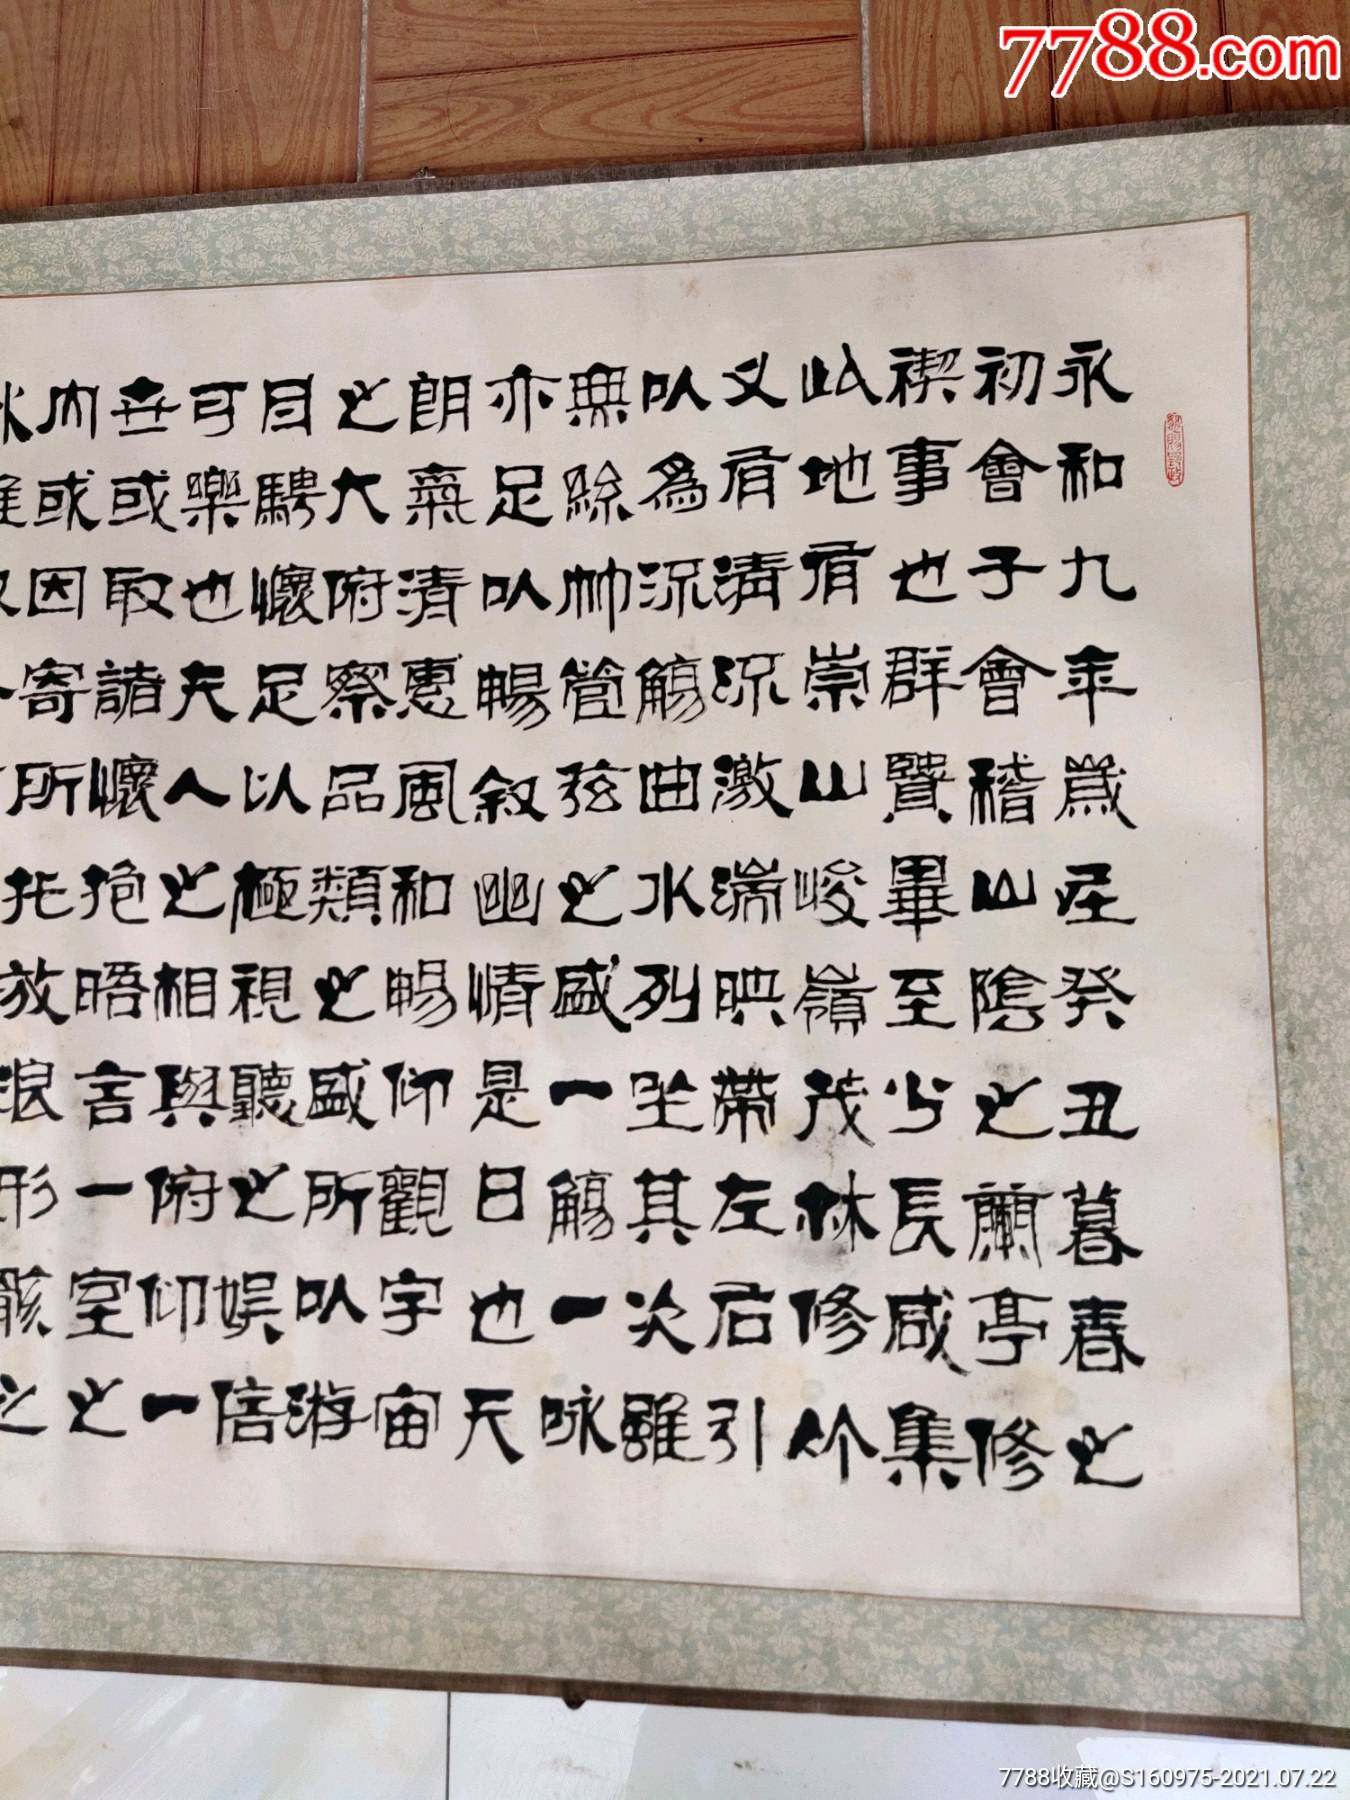 7788.com
永和九年歲在癸丑暮春之
初會于會稽山陰之蘭亭修
禊事也群賢畢至少長咸集
此地有崇山峻嶺茂林修竹
又有清流激湍映帶左右引
以為流觴曲水列坐其次雖
無絲竹管弦之盛一觴一咏
亦足以暢叙幽情是日也天
朗氣清惠風和暢仰觀宇宙
之大俯察品類之盛所以游
目騁懷足以極視聽之娛信
可樂也夫人之相與俯仰一
世或取諸懷抱晤言一室之
內或因寄所托放浪形骸之
7788收藏@S160975-2021.07.22